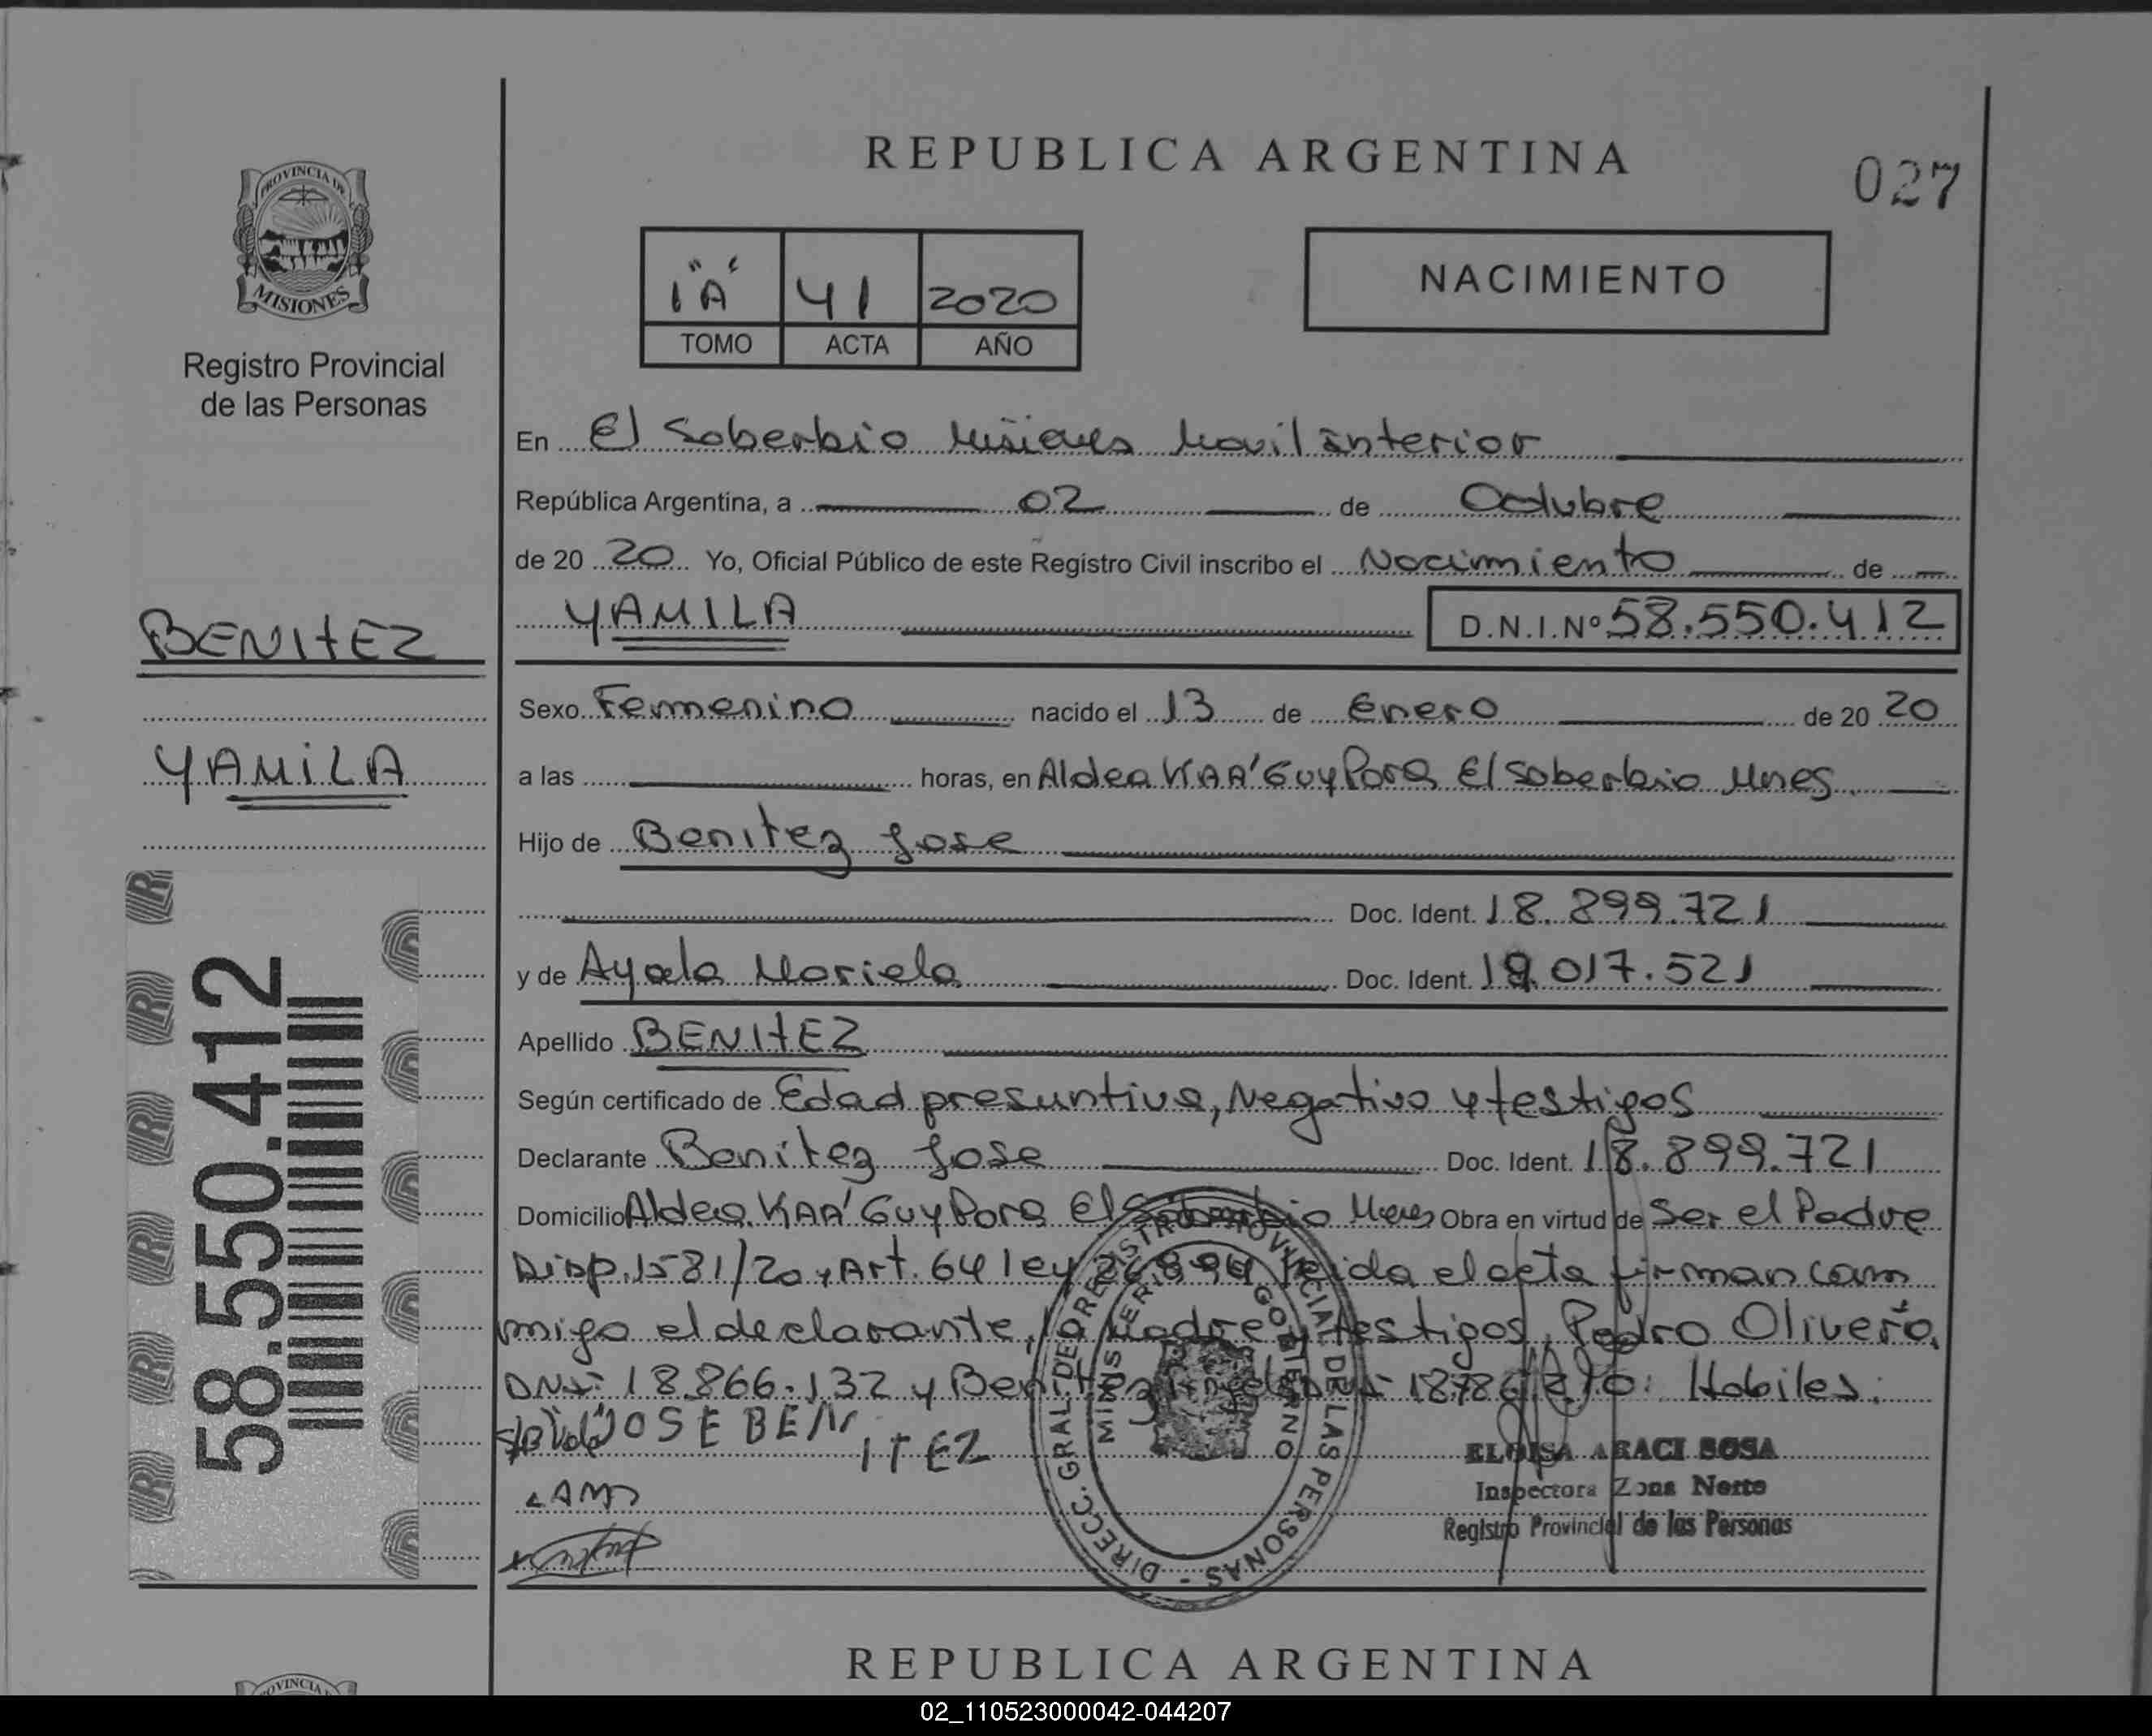 REPUBLICA ARGENTINA
027
PROVINCIA DE
MISIONES
Registro Provincial
de las Personas
1 "A" 41 2020
TOMO ACTA AÑO
NACIMIENTO
En El Soberbio Misiones Movil interior
República Argentina, a 02 de Octubre
de 20 20 Yo, Oficial Público de este Registro Civil inscribo el Nacimiento de
YAMILA D.N.I.Nº 58.550.412
BENITEZ
YAMILA
Sexo Femenino nacido el 13 de Enero de 20 20
a las horas, en Aldea KAA'Guy Pora El Soberbio Mnes
Hijo de Benitez Jose
Doc. Ident. 18.899.721
y de Ayala Mariela Doc. Ident. 19.017.521
Apellido BENITEZ
Según certificado de Edad presuntiva, Negativo y testigos
Declarante Benitez Jose Doc. Ident. 18.899.721
Domicilio Aldea KAA'Guy Pora El Soberbio Mnes Obra en virtud de Ser el Padre
Disp. 1581/20 y Art. 64 ley leida el acta firman con
migo el declarante, la Madre y testigos, Pedro Olivera
DNI: 18.866.132 y Benitez Habiles.
JOSE BENITEZ
58.550.412
DIRECC. GRAL. DE REGISTRO PROVINCIAL DE LAS PERSONAS -
MINISTERIO GOBIERNO
ELOISA ARACI SOSA
Inspectora Zona Norte
Registro Provincial de las Personas
REPUBLICA ARGENTINA
02_110523000042-044207